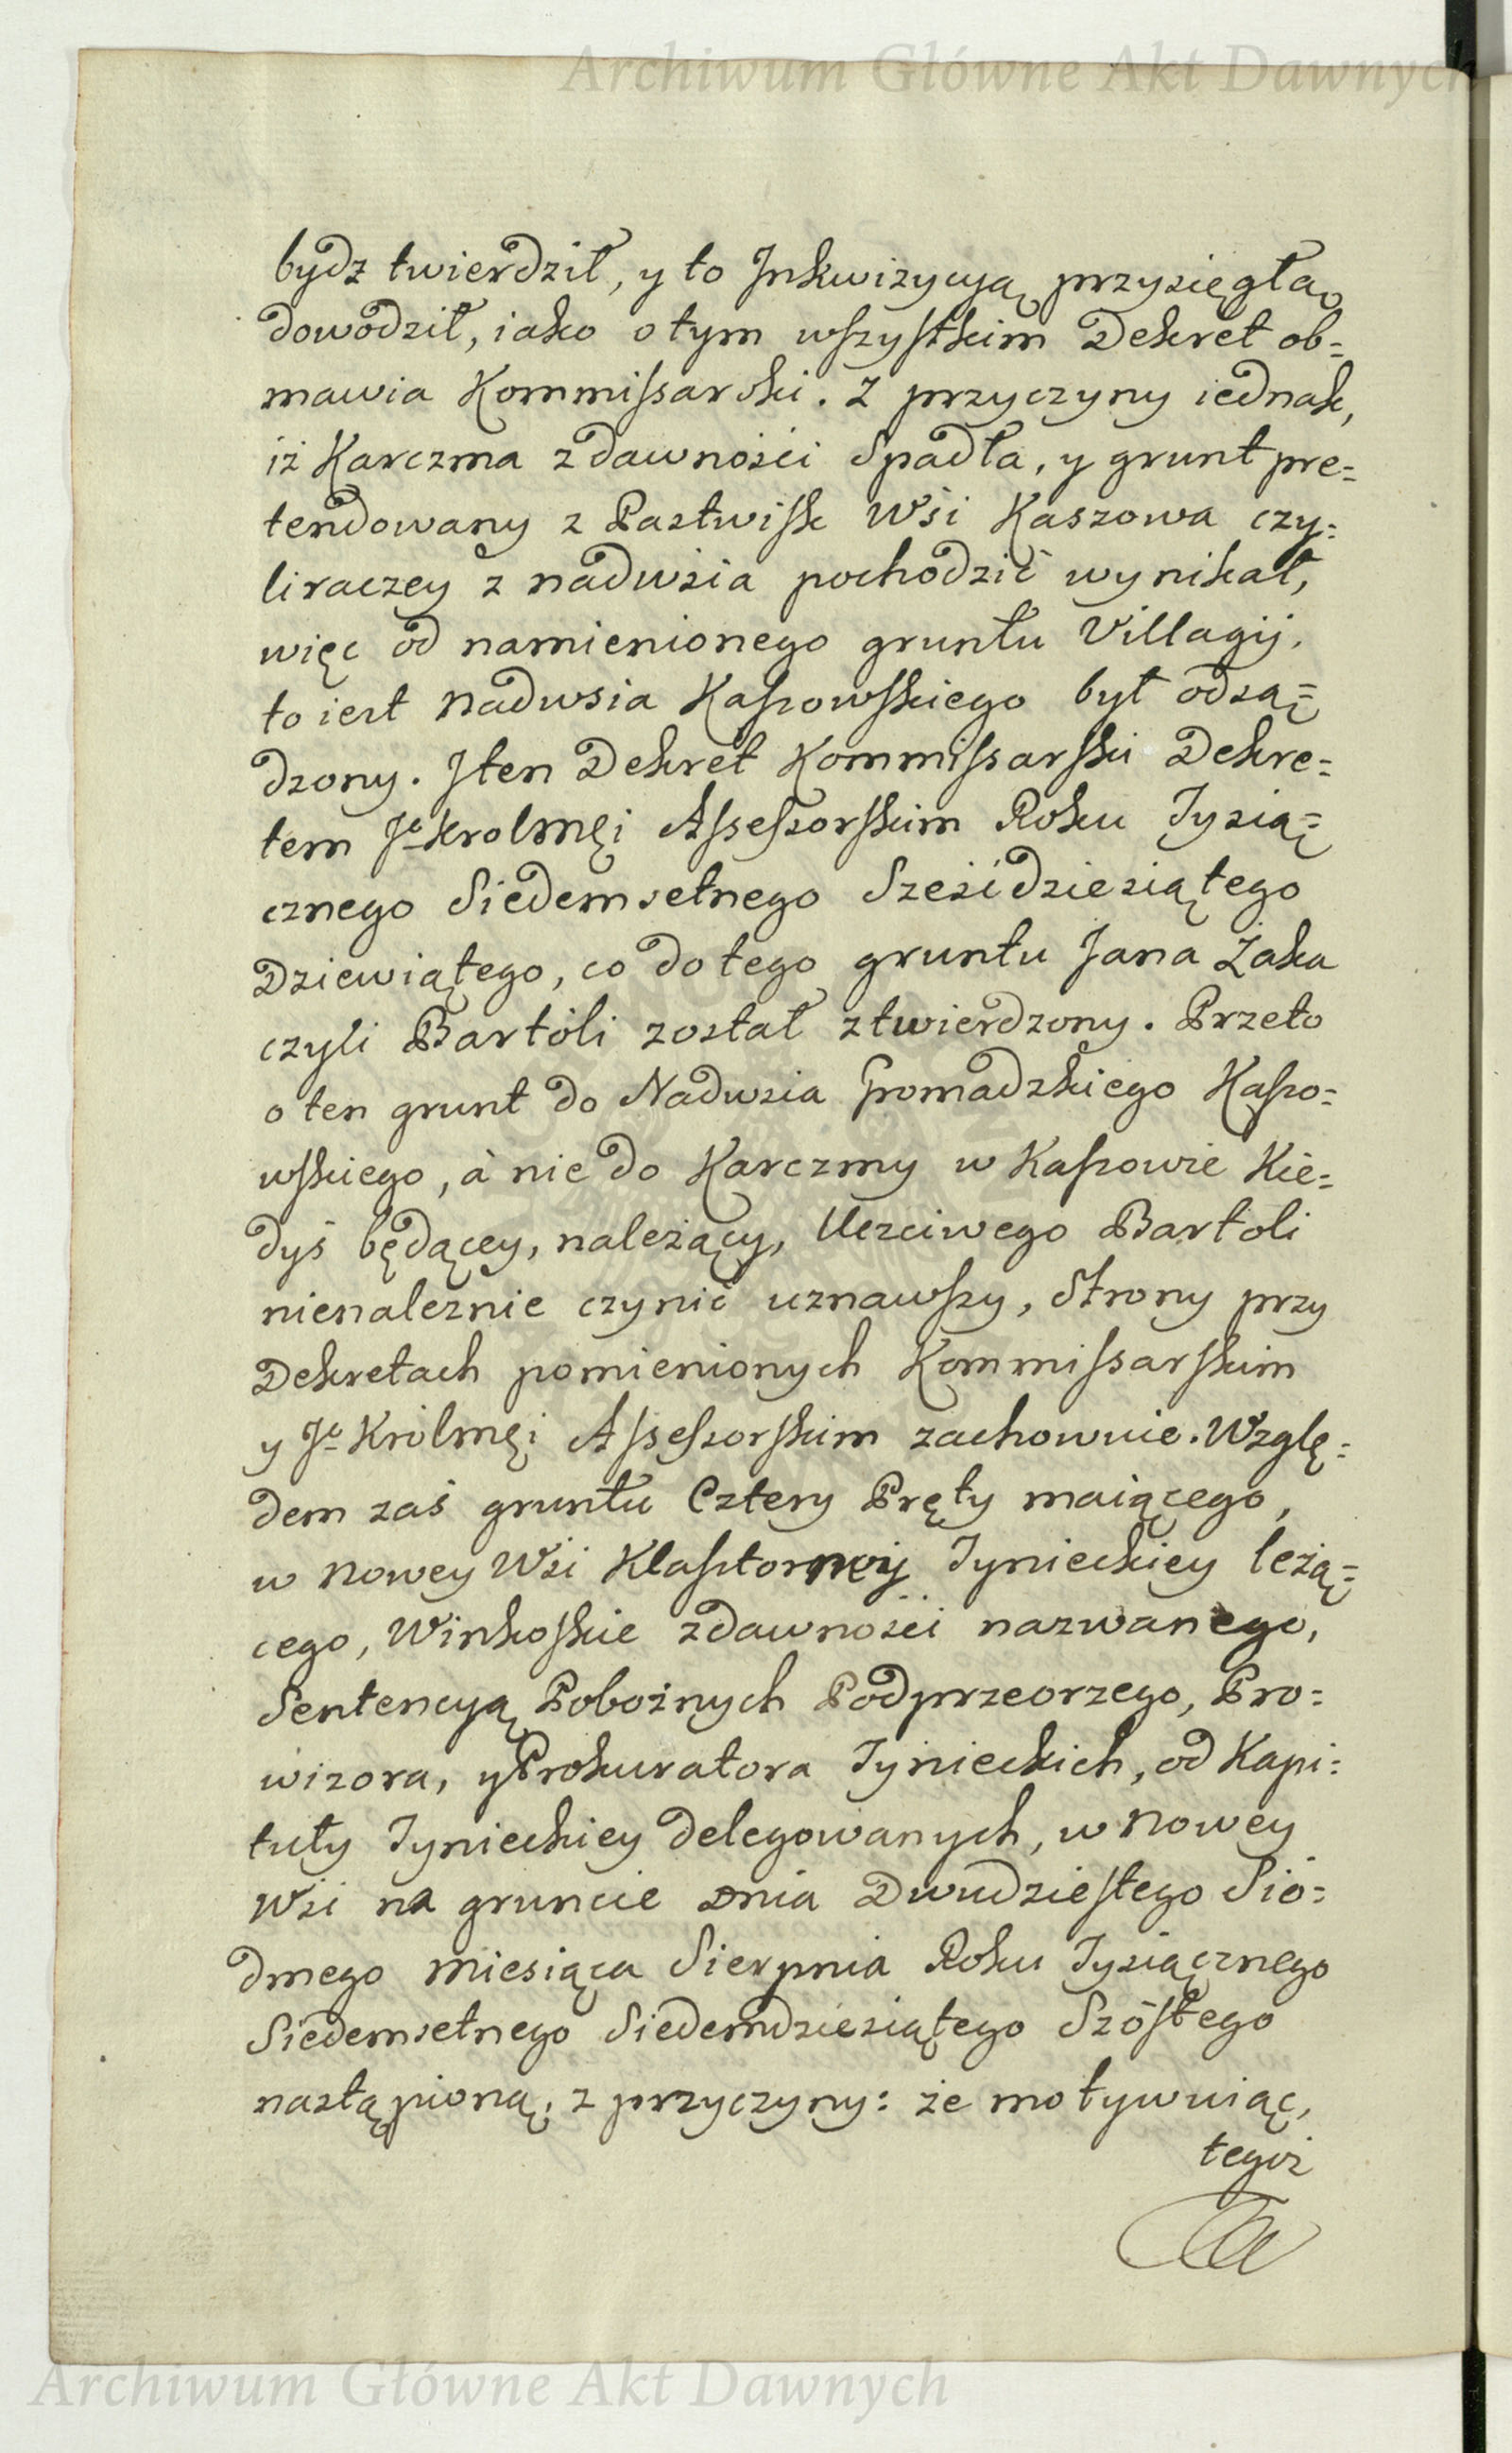 Archiwum Główne Akt Dawnych
bydz twierdził, y to Inkwizycyą przysięgłą
dowodził, iako o tym wszystkim Dekret ob=
mawia Kommissarski. Z przyczyny iednak,
iż Karczma zdawności Spadła, y grunt pre=
tendowany z Pastwisk Wśi Kaszowa czy=
li raczey z nadwsia pochodzić wynikał,
więc od namienionego gruntu Villagij.
to iest nadwsia Kaszowskiego był odsą=
dzony. I ten Dekret Kommissarski Dekre=
tem Je Krolmći Assessorskim Roku Tysią=
cznego Siedemsetnego Sześćdziesiątego
Dziewiątego, co do tego gruntu Jana Żaka
czyli Bartóli został ztwierdzony. Przeto
o ten grunt do Nadwsia Gromadzkiego Kaszo=
wskiego, à nie do Karczmy w Kaszowie Kie=
dyś będącey, należący, Uczciwego Bartoli
nienależnie czynić uznawszy, Strony przy
Dekretach pomienionych Kommissarskim
y Je Królmći Assessorskim zachowuie. Wzglę=
dem zaś gruntu Cztery Pręty maiącego,
w nowey Wśi Klasztorney Tynieckiey leżą=
cego, Winkoskie zdawności nazwanego,
Sentencyą Pobożnych Podprzeorzego, Pro=
wizora, y Prokuratora Tynieckich, od Kapi=
tuły Tynieckiey delegowanych, w nowey
Wśi na gruncie dnia Dwudziestego Sió=
dmego miesiąca Sierpnia Roku Tysiącznego
Siedemsetnego Siedemdziesiątego Szóstego
nastąpioną, z przyczyny: że motywuiąc,
tegoż
Archiwum Główne Akt Dawnych